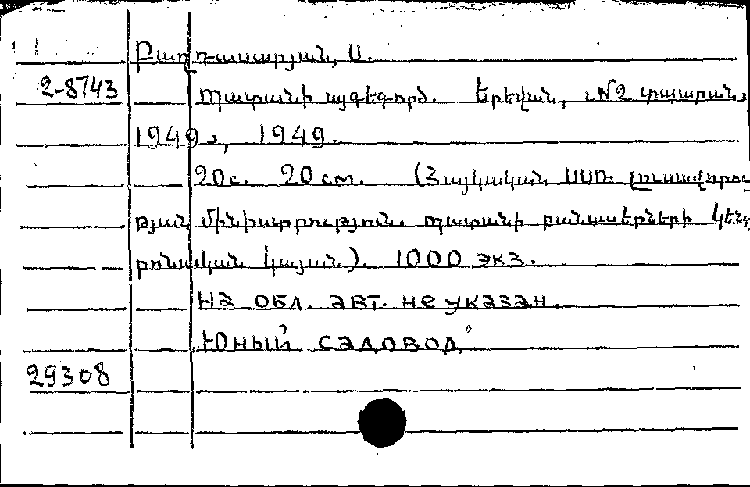 Բաղդասարյան, Ա.
2-8743 Պատանի այգեգործ. Երևան, №2 տպարան,
1949 թ., 1949.
20 с. 20 см. (Հայկական ՍՍՌ լուսավորու
թյան մինիստրություն. Պատանի բանասերների կենտ
րոնական կայան). 1000 экз.
На обл. авт. не указан.
Юный садовод.
29308